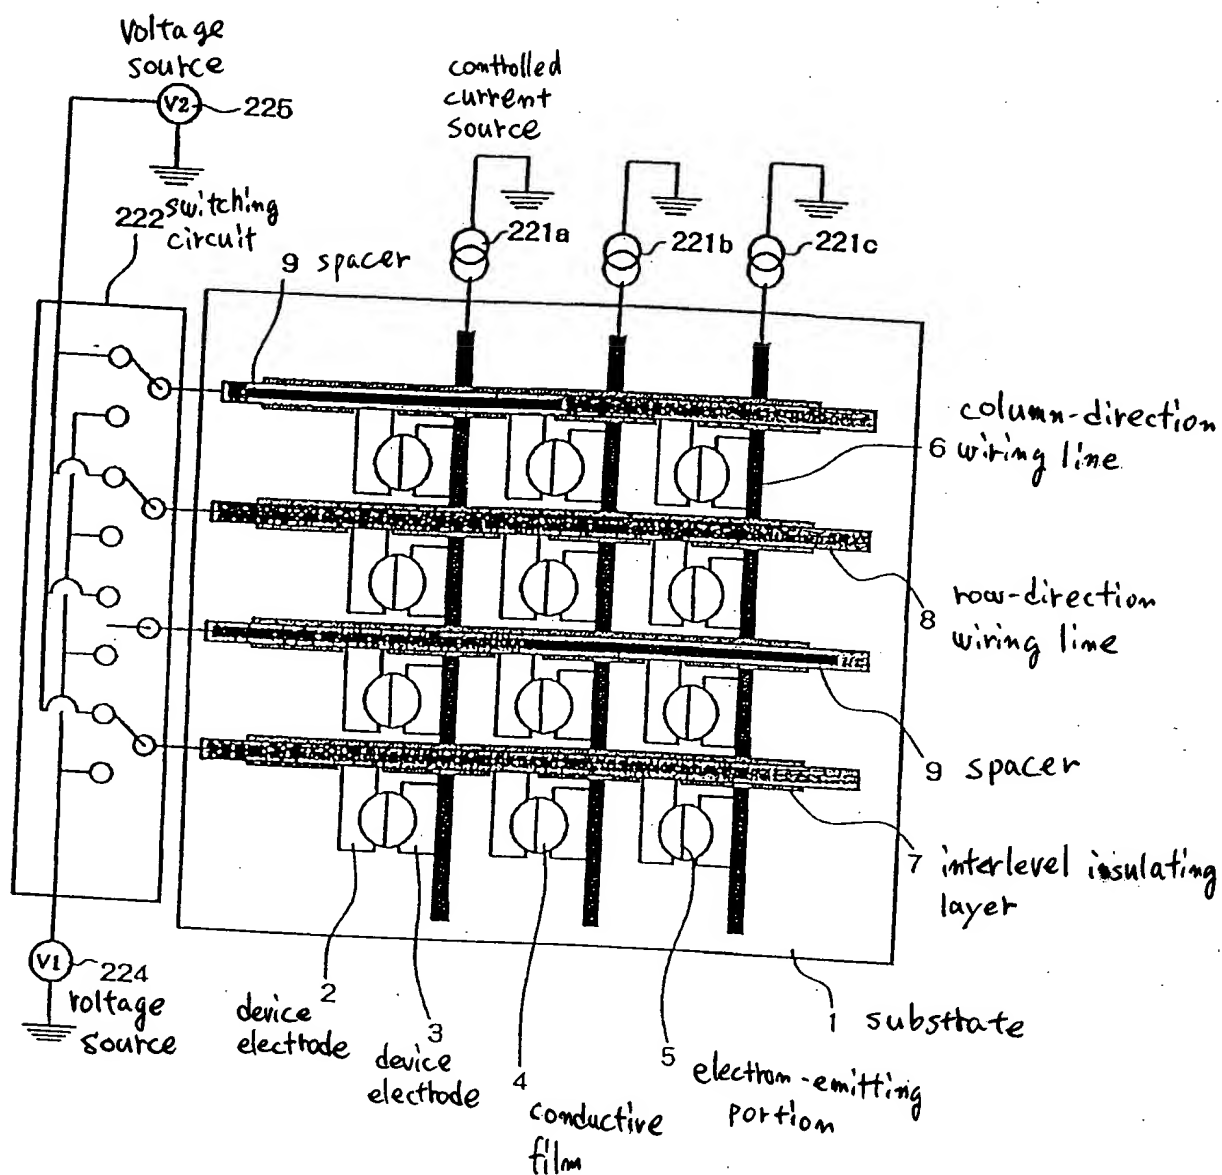 Voltage
source
V2
225
controlled
current
source
222
switching
circuit
221a
221b
221c
9 spacer
column-direction
6 wiring line
8 row-direction
wiring line
9 spacer
7 interlevel insulating
layer
V1
224
voltage
source
2
device
electrode
3
device
electrode
4
conductive
film
5 electron-emitting
portion
1 substrate